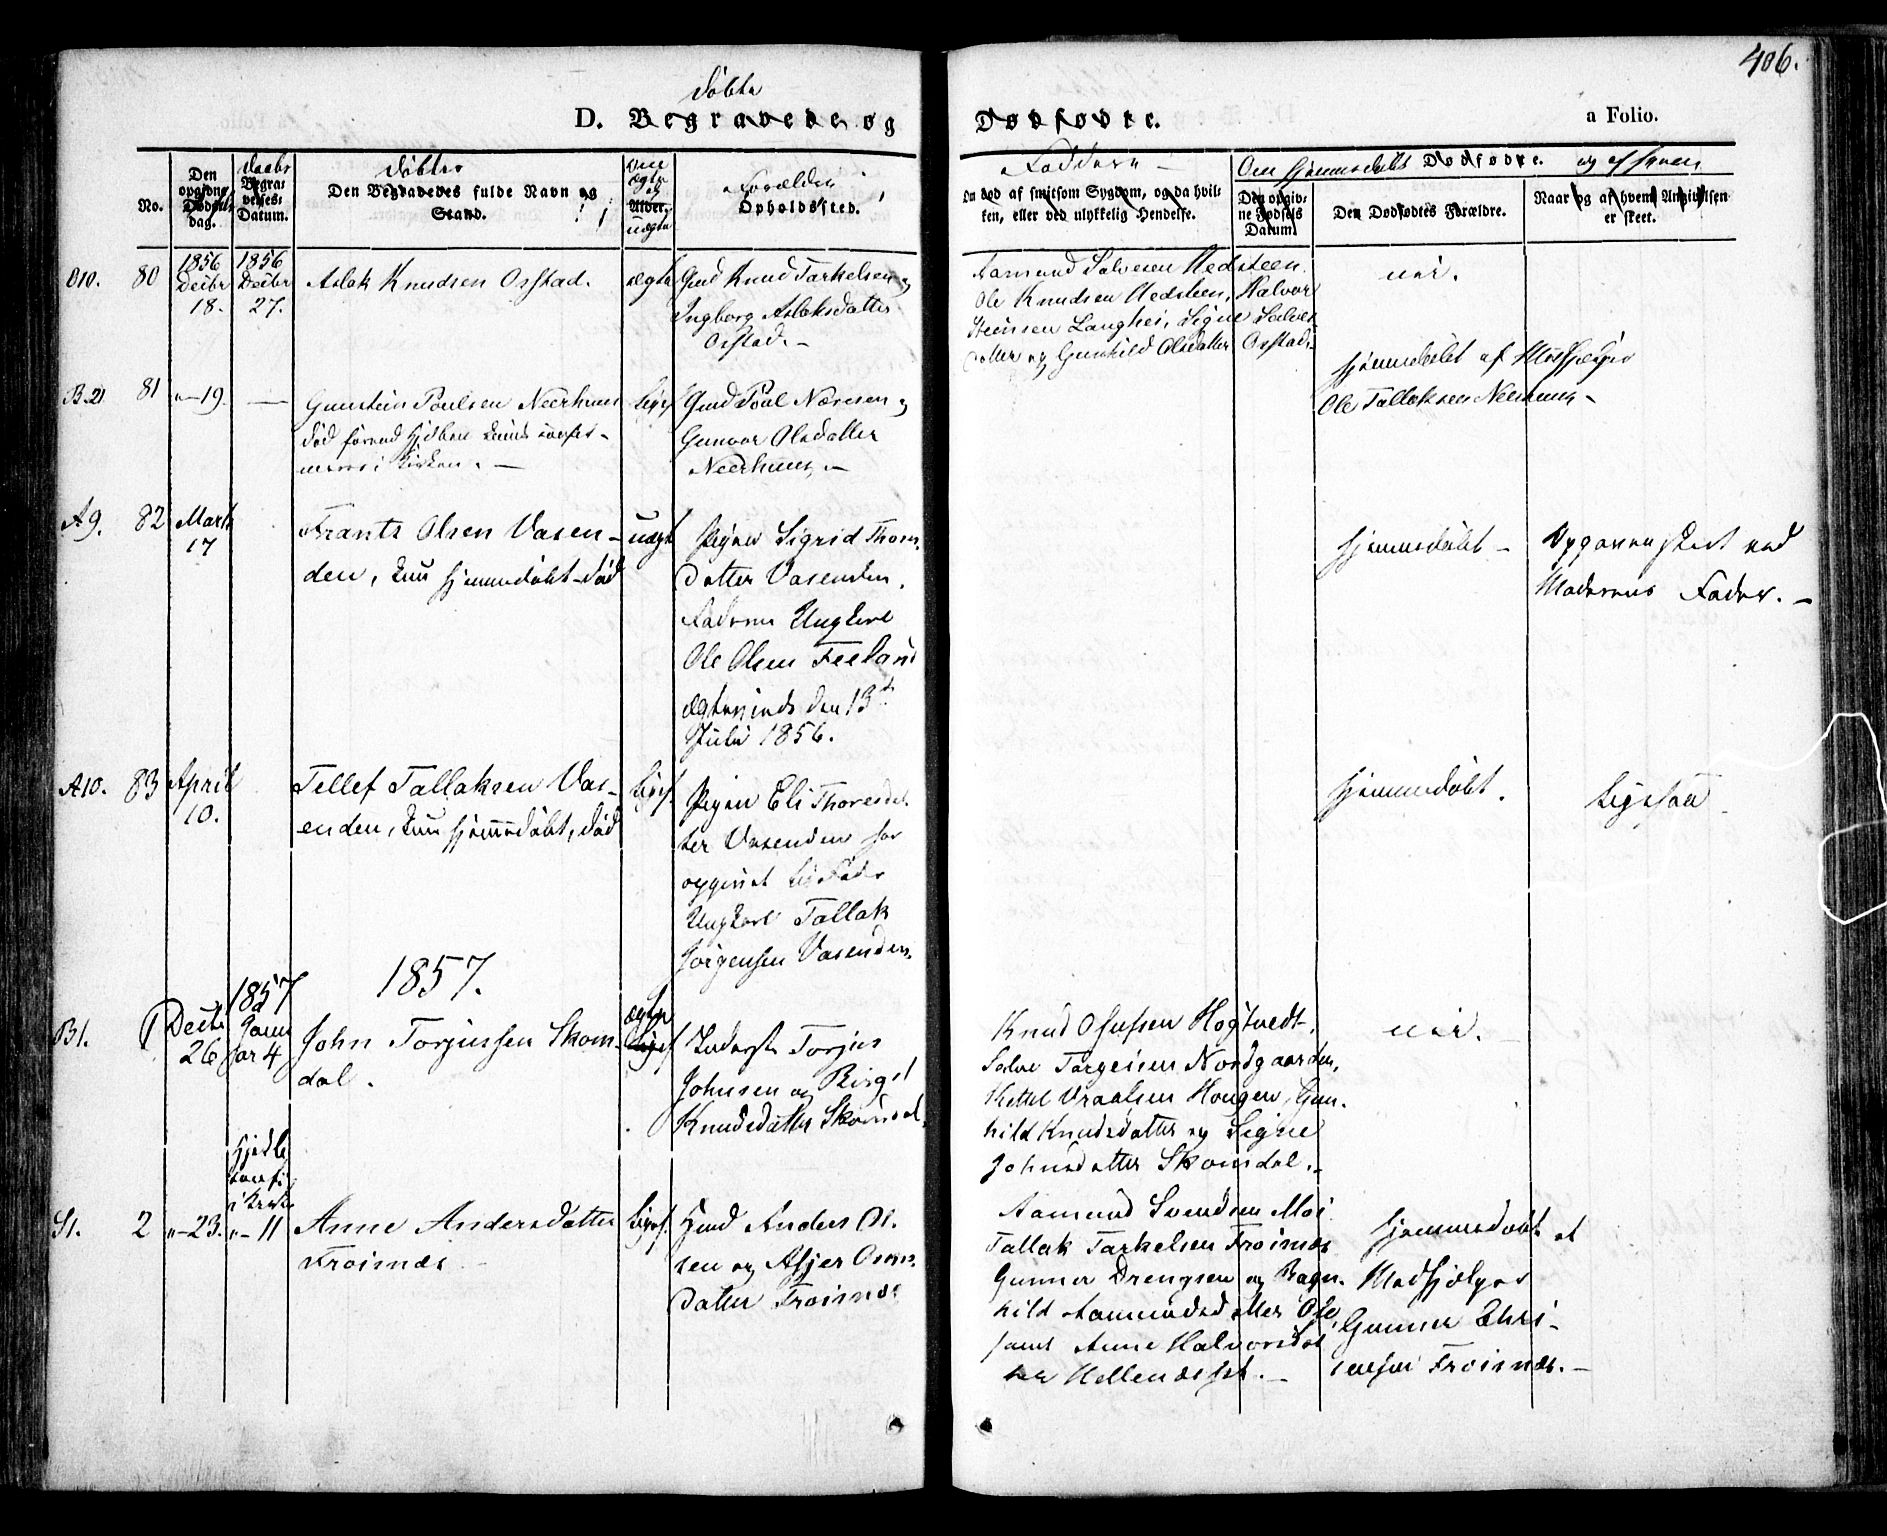 406.
Döbte
D. Begravede og Dødfødte. a Folio.
No.
Den opgivne Dødsdag.
Daabs
Begravelses-Datum.
Döbtes
Den Begravedes fulde Navn og Stand.
Om ægte
Alder.
uægte
Forældre
Opholdssted.
Faddere
Om død af smitsom Sygdom, og da hvilken, eller ved ulykkelig Hendelse.
Om hjemmedøbt Dødfødte. og af hvem
Den opgivne Fødsels Datum.
Den Dødfødtes Forældre.
Naar og af hvem Angivelsen er skeet.
010. 80 1856 Decbr 18. 1856 Decbr 27.
Aslak Knudsen Osstad.
ægte
Gmd Knud Tarkelsen og
Ingborg Aslaksdatter
Osstad. -
Aamund Salvesen Hedsteen.
Ole Knudsen Hedsteen, Halvor
Steinsen Langhei, Signe Salves
datter og Gunhild Olsdatter Osstad.
nei.
B.21 81 "-19. -
Gunstein Poulsen Neerhuus
død förend hjdben
i Kirken. -
ligel
Gmd Poul Næresen og
Gunvor Olsdatter
Neerhuus. -
hjemmedøbt af
Ole Tallaksen Neerhuus -
A9. 82 Marts 17
Frants Olsen Vasen-
den, kun hjemmedøbt - død
uægt
Pigen Sigrid Thom.
datter Vasenden.
Faderen Ungkarl
Ole Olsen Feeland
ægteviede den 13de
Juli 1856.
hjemmedøbt -
Opgaven skeet ved
Moderens Fader. -
A10. 83 April 10.
Tellef Tallaksen Vas-
enden, kun hjemmedøbt, død
ligel.
Pigen Eli Thoresdat
ter Vasenden har
opgivet til Fader
Ungkarl Tallak
Jörgensen Vasenden.
hjemmedøbt.
ligesaa
1857.
B1. 1 Decbr 26 1857 Januar 4
John Torjussen Skom-
dal.
ægte
Inderst Torjus
Johnsen og Birgit
Knudsdatter Skomdal.
Knud Olufsen Hogtvedt.
Salve Targeisen Nordgaarden,
Kittel Vraalsen Hougen, Gun.
hild Knudsdatter og Signe
Johnsdatter Skomdal. -
nei.
S1. 2 "-23. "-11
Anne Andersdatter
Froisnæs
ligel.
Gmd Anders Ol.
sen og Asjer Osm.
datter Froisnæs
Aamund Svendsen Moi
Tallak Tarkelsen Froisnæs
Gunner Drengsen og Ragn.
hild Aamundsdatter Ose,
samt Anne Halvorsdat
ter Hellendesset. -
hjemmedøbt af
Medhjelper
Gunner Chri-
Froisnæs. -